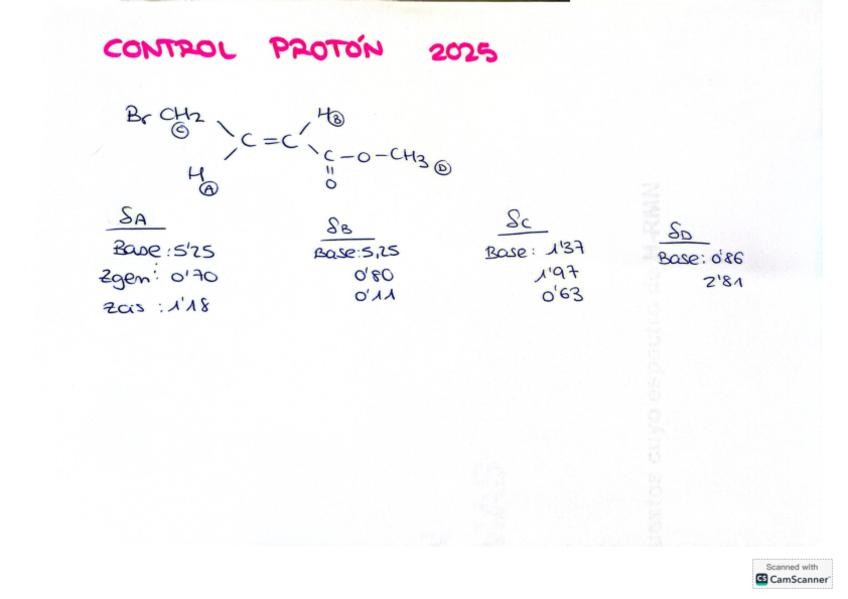 CONTROL PROTÓN 2025
Br CH2 H B
C
C = C
C - O - CH3 D
H
A O
δA
Base: 5'25
Zgen: 0'70
Zcis: 1'18
δB
Base: 5,25
0'80
0'11
δC
Base: 1'37
1'97
0'63
δD
Base: 0'86
2'81
Scanned with
CS CamScanner